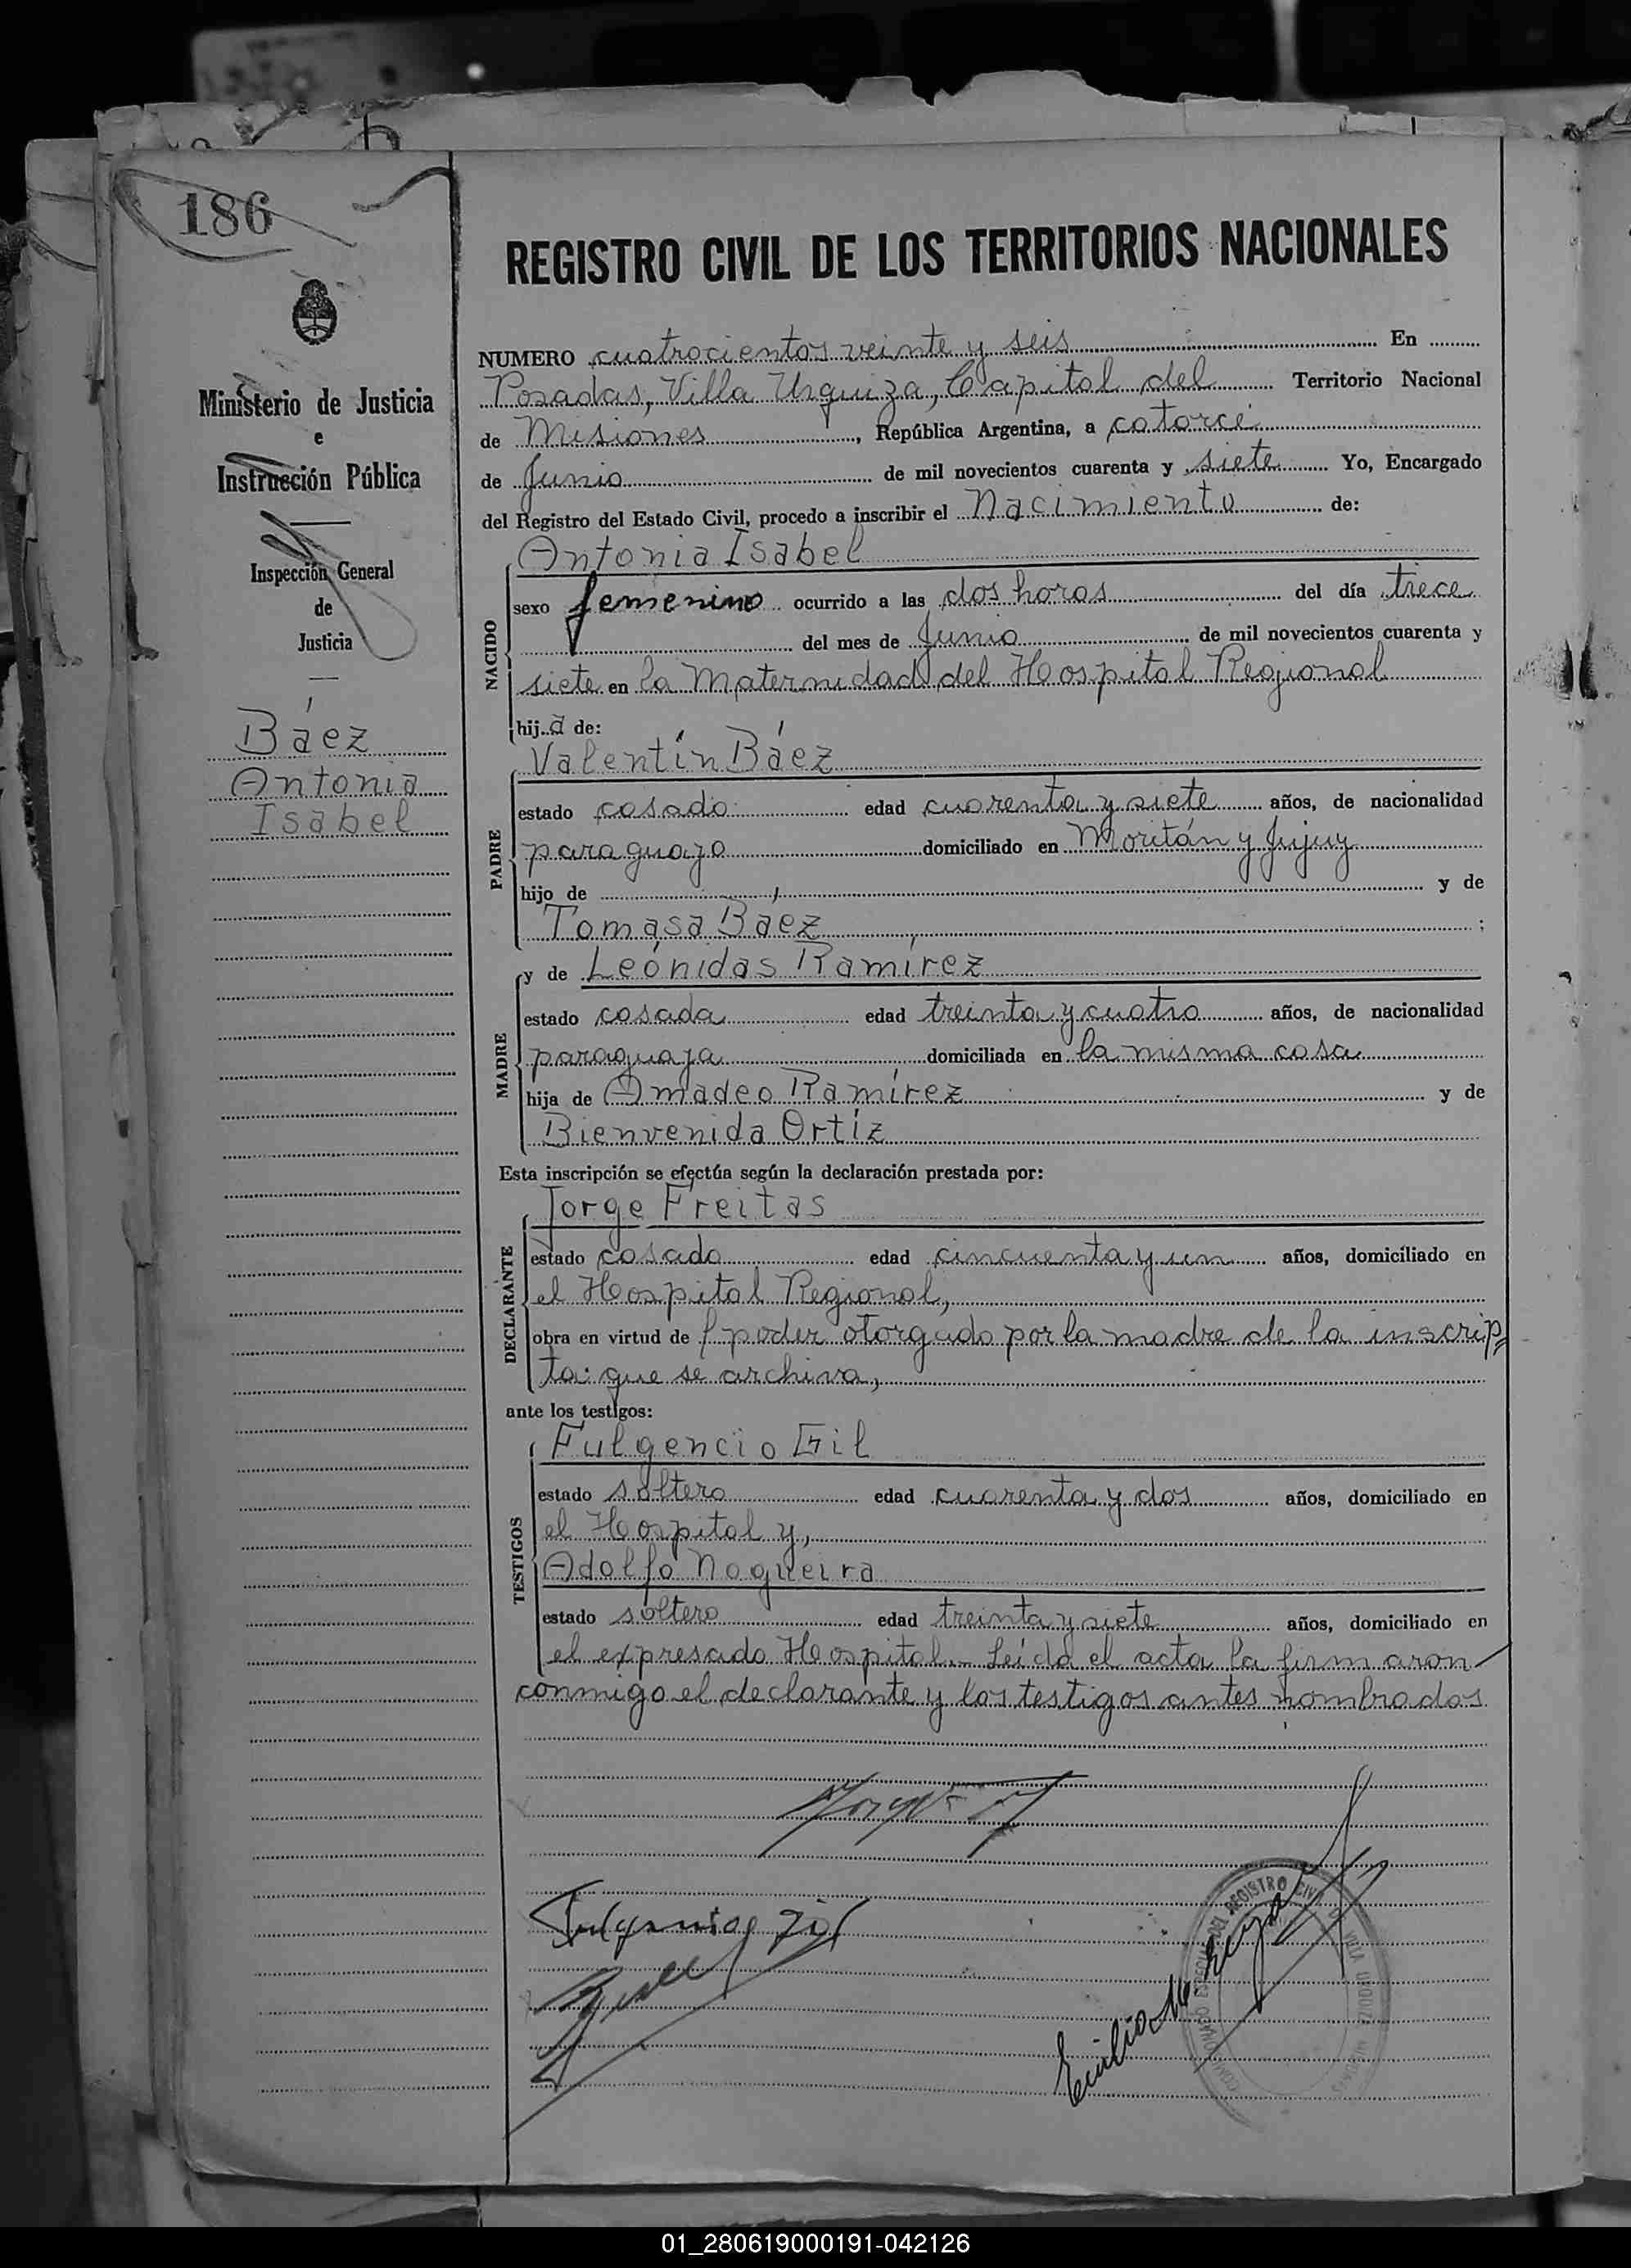 186
REGISTRO CIVIL DE LOS TERRITORIOS NACIONALES
Ministerio de Justicia
e
Instrucción Pública
Inspección General
de
Justicia
Báez
Antonia
Isabel
NUMERO cuatrocientos veinte y seis En
Posadas, Villa Urquiza, Capital del Territorio Nacional
de Misiones, República Argentina, a catorce
de Junio de mil novecientos cuarenta y siete Yo, Encargado
del Registro del Estado Civil, procedo a inscribir el Nacimiento de:
Antonia Isabel
NACIDO
sexo femenino ocurrido a las dos horas del día trece
del mes de Junio de mil novecientos cuarenta y
siete en la Maternidad del Hospital Regional
hija de:
Valentín Báez
PADRE
estado casado edad cuarenta y siete años, de nacionalidad
paraguayo domiciliado en Moritán y Jujuy
hijo de y de
Tomasa Báez;
y de Leónidas Ramírez
MADRE
estado casada edad treinta y cuatro años, de nacionalidad
paraguaya domiciliada en la misma casa
hija de Amadeo Ramírez y de
Bienvenida Ortíz
Esta inscripción se efectúa según la declaración prestada por:
Jorge Freitas
DECLARANTE
estado casado edad cincuenta y un años, domiciliado en
el Hospital Regional,
obra en virtud de poder otorgado por la madre de la inscrip=
ta: que se archiva,
ante los testigos:
Fulgencio Gil
TESTIGOS
estado soltero edad cuarenta y dos años, domiciliado en
el Hospital y,
Adolfo Nogueira
estado soltero edad treinta y siete años, domiciliado en
el expresado Hospital.- Leída el acta la firmaron
conmigo el declarante y los testigos antes nombrados
Fulgencio Gil
Emilio M.
REGISTRO CIVIL
VILLA URQUIZA MISIONES
01_280619000191-042126